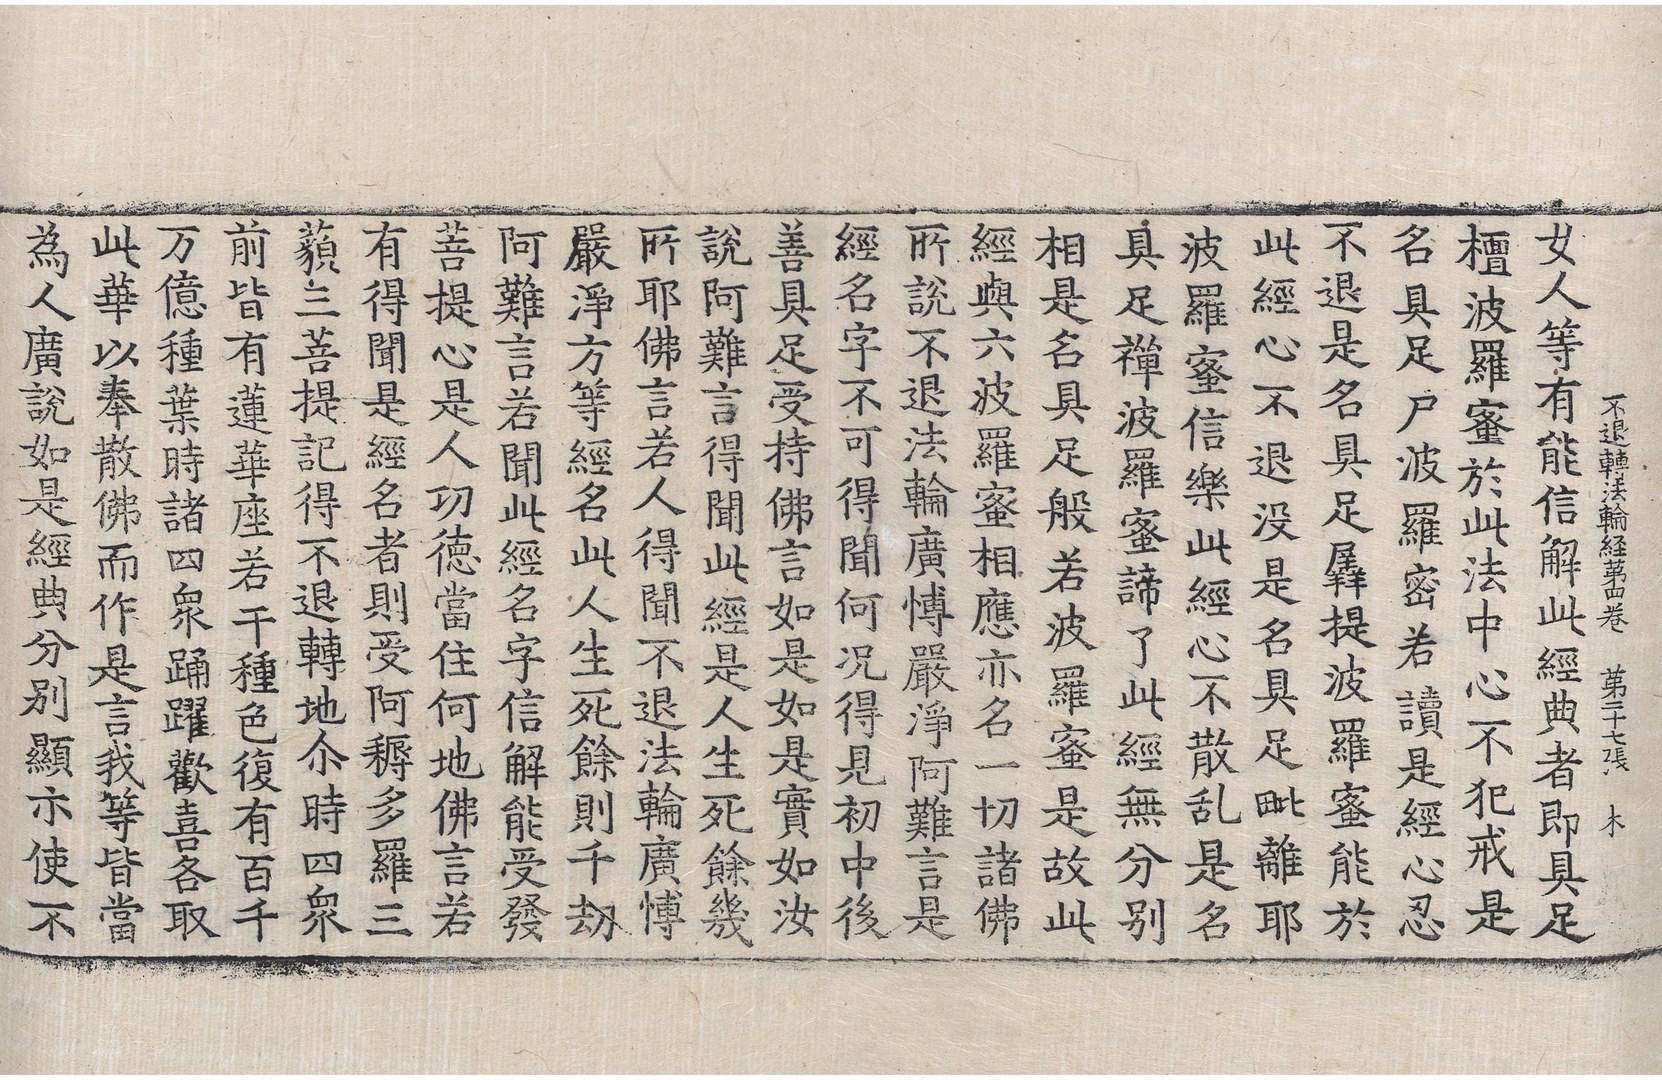 不退轉法輪経苐四卷　第二十七張　木
女人等有能信解此經典者即具足
檀波羅蜜於此法中心不犯戒是
名具足尸波羅密若讀是經心忍
不退是名具足羼提波羅蜜能於
此經心不退没是名具足毗離耶
波羅蜜信樂此經心不散乱是名
具足禪波羅蜜諦了此經無分别
相是名具足般若波羅蜜是故此
經與六波羅蜜相應亦名一切諸佛
所說不退法輪廣愽嚴淨阿難言是
經名字不可得聞何况得見初中後
善具足受持佛言如是如是實如汝
說阿難言得聞此經是人生死餘幾
所耶佛言若人得聞不退法輪廣愽
嚴淨方等經名此人生死餘則千劫
阿難言若聞此經名字信解能受發
菩提心是人功徳當住何地佛言若
有得聞是經名者則受阿耨多羅三
藐三菩提記得不退轉地尒時四衆
前皆有蓮華座若干種色復有百千
万億種葉時諸四衆踊躍歡喜各取
此華以奉散佛而作是言我等皆當
為人廣說如是經典分别顯示使不